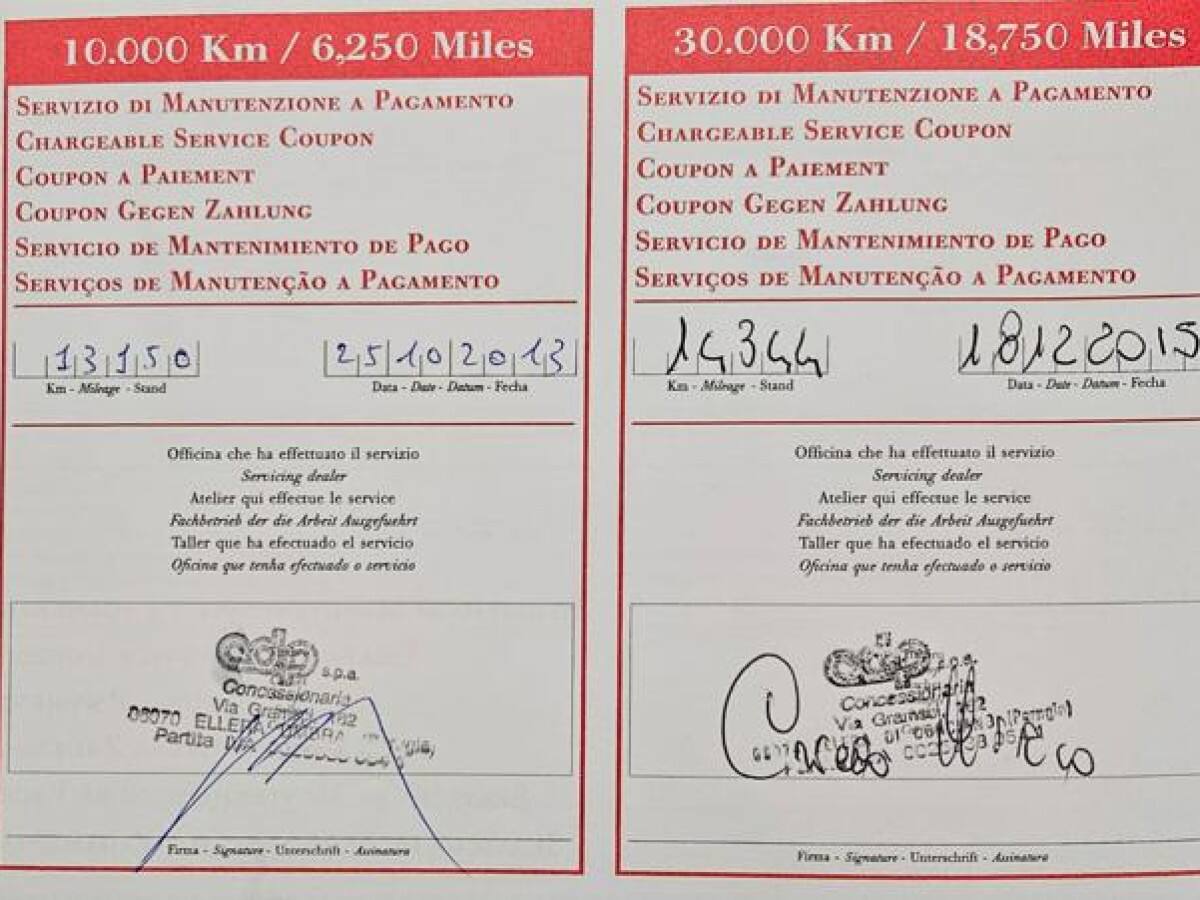 10.000 Km / 6,250 Miles
SERVIZIO DI MANUTENZIONE A PAGAMENTO
CHARGEABLE SERVICE COUPON
COUPON A PAIEMENT
COUPON GEGEN ZAHLUNG
SERVICIO DE MANTENIMIENTO DE PAGO
SERVIÇOS DE MANUTENÇÃO A PAGAMENTO
13150 25102013
Km - Mileage - Stand Data - Date - Datum - Fecha
Officina che ha effettuato il servizio
Servicing dealer
Atelier qui effectue le service
Fachbetrieb der die Arbeit Ausgefuehrt
Taller que ha efectuado el servicio
Oficina que tenha efectuado o servicio
s.p.a.
Concessionaria
Via Gramsci
06070 ELLERA UMBRA
Partita IVA
Firma - Signature - Unterschrift - Assinatura
30.000 Km / 18,750 Miles
SERVIZIO DI MANUTENZIONE A PAGAMENTO
CHARGEABLE SERVICE COUPON
COUPON A PAIEMENT
COUPON GEGEN ZAHLUNG
SERVICIO DE MANTENIMIENTO DE PAGO
SERVIÇOS DE MANUTENÇÃO A PAGAMENTO
14344 18122015
Km - Mileage - Stand Data - Date - Datum - Fecha
Officina che ha effettuato il servizio
Servicing dealer
Atelier qui effectue le service
Fachbetrieb der die Arbeit Ausgefuehrt
Taller que ha efectuado el servicio
Oficina que tenha efectuado o servicio
s.p.a.
Concessionaria
Via Gramsci
Firma - Signature - Unterschrift - Assinatura